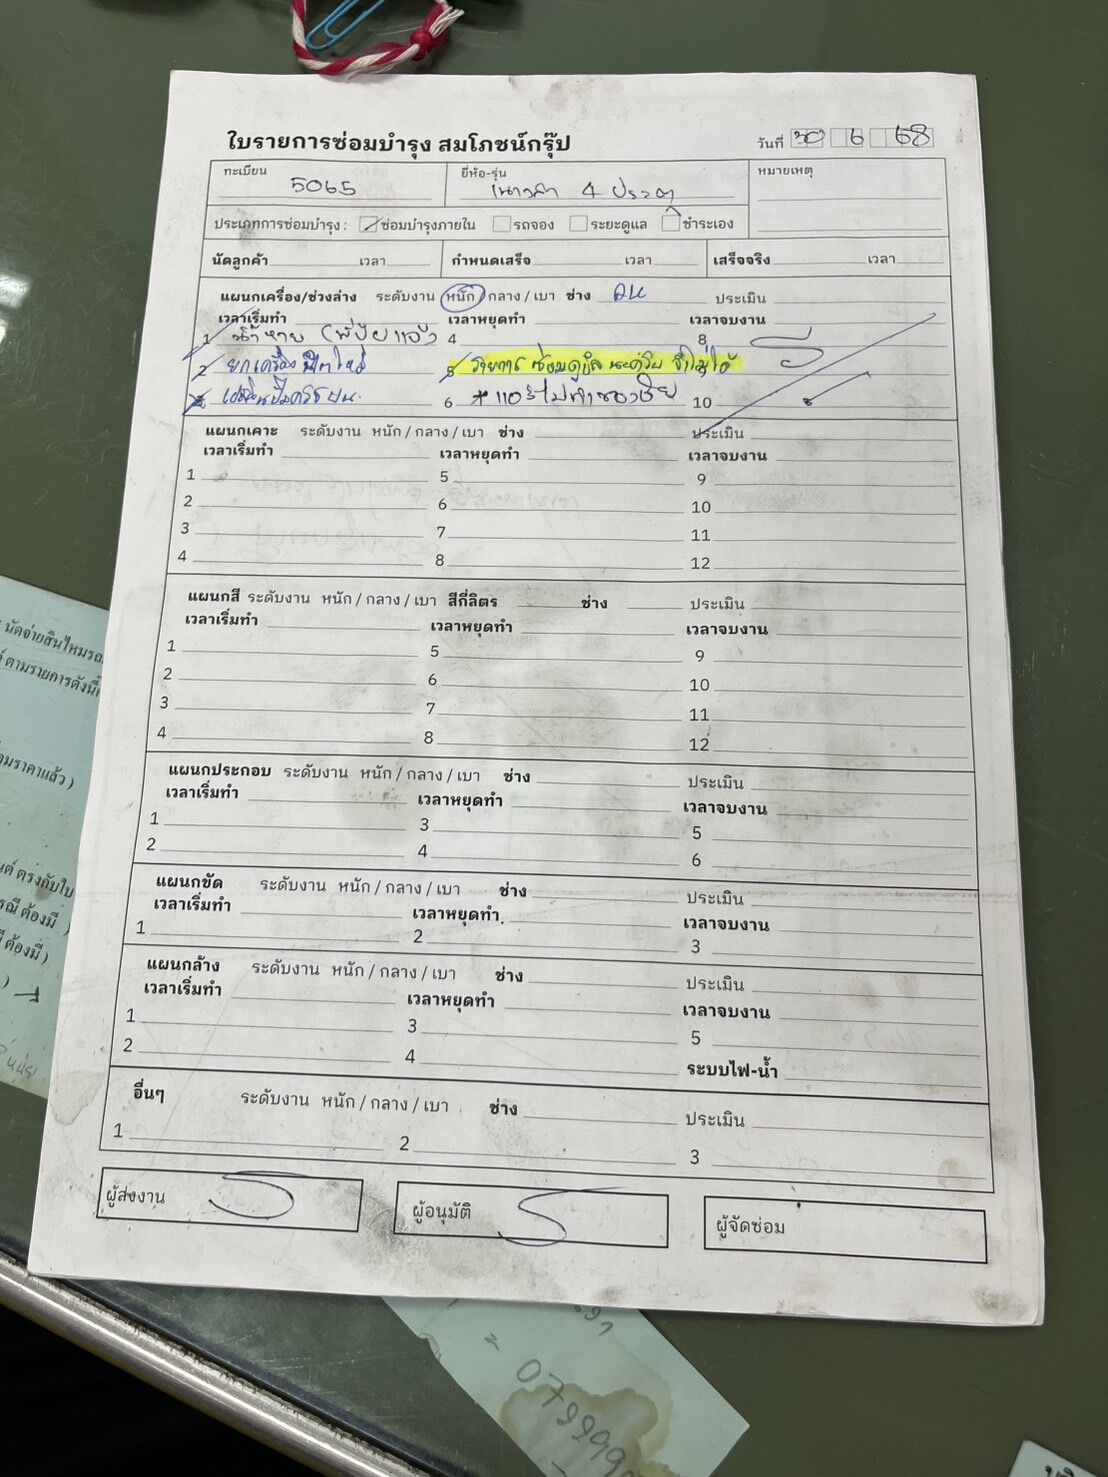 ใบรายการซ่อมบำรุง สมโภชน์กรุ๊ป วันที่ 30 6 68
ทะเบียน 5065 ยี่ห้อ-รุ่น นาวาร่า 4 ประตู หมายเหตุ
ประเภทการซ่อมบำรุง : ซ่อมบำรุงภายใน รถจอง ระยะดูแล ชำระเอง
นัดลูกค้า เวลา กำหนดเสร็จ เวลา เสร็จจริง เวลา
แผนกเครื่อง/ช่วงล่าง ระดับงาน หนัก / กลาง / เบา ช่าง ประเมิน
เวลาเริ่มทำ เวลาหยุดทำ เวลาจบงาน
1 น้ำหาย 4 8
2 ยกเครื่อง ใหม่ 5 รายการซ่อม จำไม่ได้
6 * แอร์ไม่ 10
แผนกเคาะ ระดับงาน หนัก / กลาง / เบา ช่าง ประเมิน
เวลาเริ่มทำ เวลาหยุดทำ เวลาจบงาน
1 5 9
2 6 10
3 7 11
4 8 12
แผนกสี ระดับงาน หนัก / กลาง / เบา สีกี่ลิตร ช่าง ประเมิน
เวลาเริ่มทำ เวลาหยุดทำ เวลาจบงาน
1 5 9
2 6 10
3 7 11
4 8 12
แผนกประกอบ ระดับงาน หนัก / กลาง / เบา ช่าง ประเมิน
เวลาเริ่มทำ เวลาหยุดทำ เวลาจบงาน
1 3 5
2 4 6
แผนกขัด ระดับงาน หนัก / กลาง / เบา ช่าง ประเมิน
เวลาเริ่มทำ เวลาหยุดทำ เวลาจบงาน
1 2 3
แผนกล้าง ระดับงาน หนัก / กลาง / เบา ช่าง ประเมิน
เวลาเริ่มทำ เวลาหยุดทำ เวลาจบงาน
1 3 5
2 4 ระบบไฟ-น้ำ
อื่นๆ ระดับงาน หนัก / กลาง / เบา ช่าง ประเมิน
1 2 3
ผู้ส่งงาน ผู้อนุมัติ ผู้จัดซ่อม
นัดจ่ายสินไหมรถ
ตามรายการดังนี้
ราคาแล้ว )
ตรงกับใบ
ต้องมี )
ต้องมี )